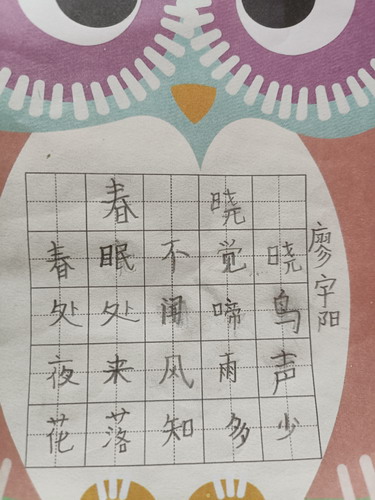 春晓
春眠不觉晓
处处闻啼鸟
夜来风雨声
花落知多少
廖宇阳